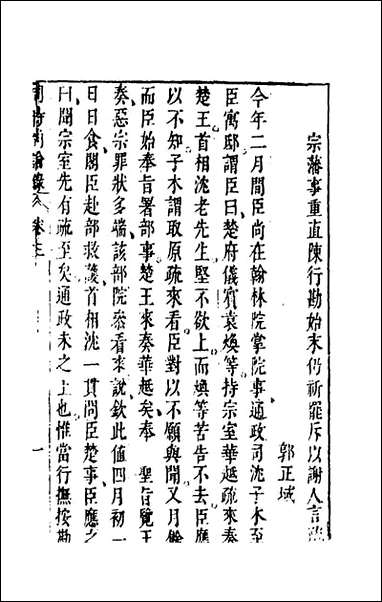 宗藩事重直陳行勘始末仍祈罷斥以謝人言疏
郭正域
今年二月間臣尚在翰林院掌院事通政司沈子木至
臣寓邸謂臣曰楚府儀賓袁煥等持宗室華越疏來奏
楚王首相沈老先生堅不欲上而煥等苦告不去臣應
以不知子木謂取原疏來看臣對以不願與聞又月餘
而臣始奉旨署部事楚王來奏華越矣奉　聖旨覽王
奏惡宗罪狀多端該部院叅看來說欽此值四月初一
日日食閣臣赴部救護首相沈一貫問臣楚事臣應之
曰聞宗室先有疏至矣通政未之上也惟當行撫按勘
卷之
一